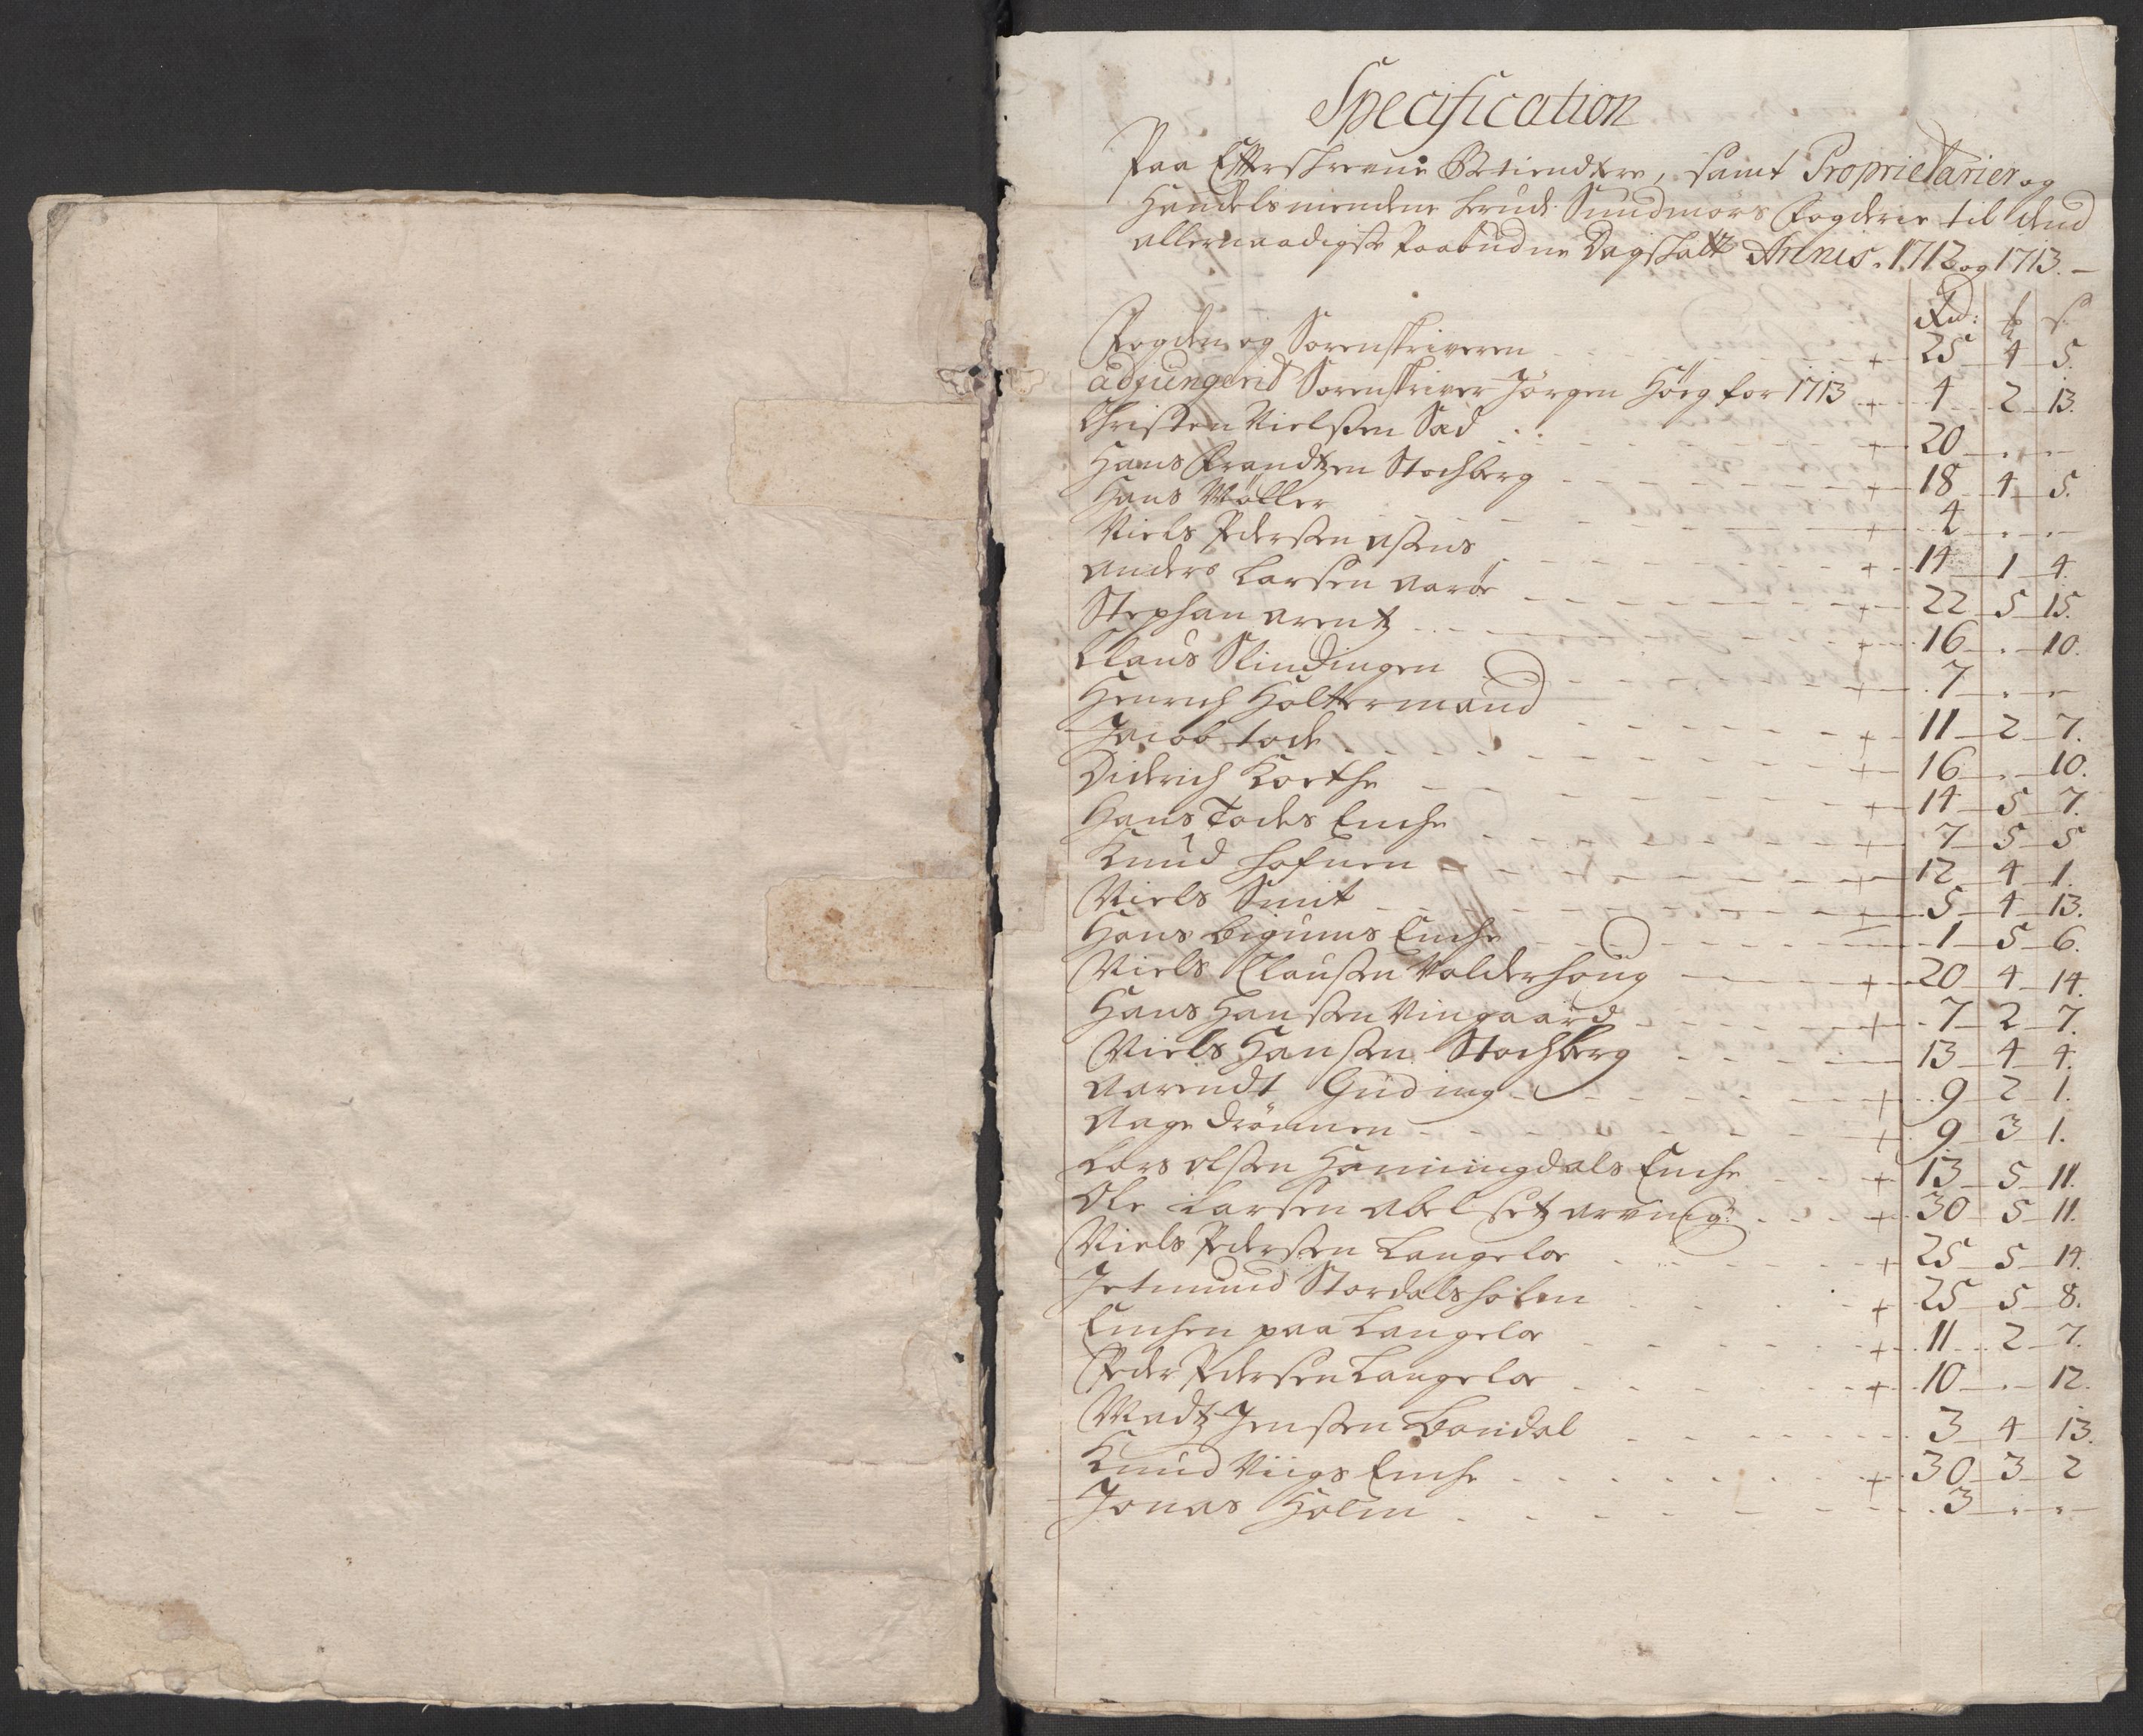 Specification
Paa Efterskrevne Betiendtere, samt Proprietarier og
Handelsmendene her udi Sundmørs Fogderie til dend
allernaadigste Paabudne Dagskatt Annis. 1712 og 1713. –
Rd: ℔ s
Fogden og Sorenskriveren + 25 4 5.
adjungerid Sorenskriver Jørgen Höeg for 1713 + 4 2 13.
Christen Nielsen Sæd + 20 . .
Hans Frandtzen Stochberg + 18 4 5.
Hans Møller + 4 . .
Niels Pedersen + 14 1 4.
Anders Larsen Aarøe + 22 5 15.
Stephan Arentz + 16 . 10.
Claus Slindingen + 7 . .
Henrich Holtermand + 11 2 7.
Jacob tode + 16 . 10.
Diderich Koethe + 14 5 7.
Hans Todes Enche + 7 5 5
Knud hafnen + 12 4 1.
Niels Smit + 5 4 13.
Hans Bigums Enche 1 5 6.
Niels Clausen Valderhoug + 20 4 14.
Hans Hansen Vingaard + 7 2 7.
Niels Hansen Stochberg 13 4 4.
Aarendt Güding + 9 2 1.
Aage Drönnen + 9 3 1.
Lars Olsen Hanningdals Enche + 13 5 11.
Ole Larsen Abelsetz arving: + 30 5 11.
Niels Pedersen Langeloe + 25 5 14.
Jetmund Stordalsholm + 25 5 8.
Enchen paa Langeloe + 11 2 7.
Peder Pedersen Langeloe + 10 . 12.
Madtz Jensen Bondal 3 4 13.
Knud Viigs Enche + 30 3 2
Jonas Holm 3 . .